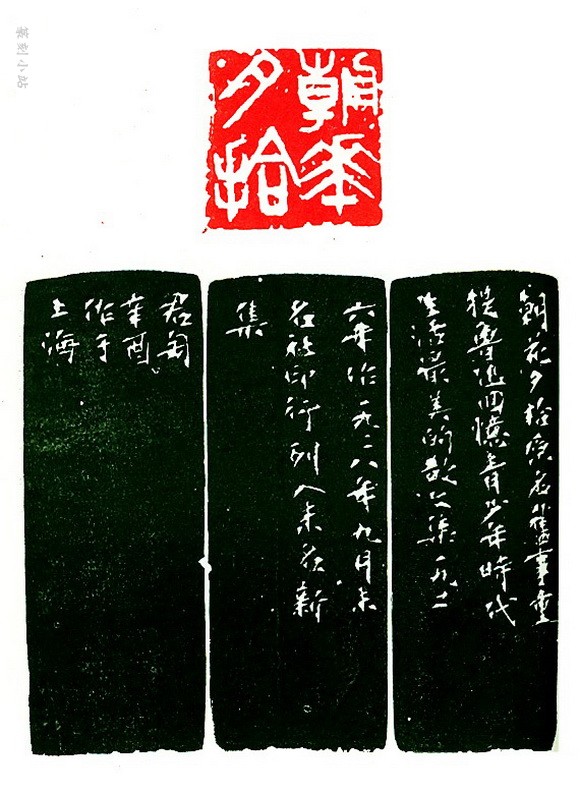 篆刻小站
朝華
夕拾
朝花夕拾原名舊事重
提魯迅回憶青少年時代
生活最美的散文集一九二
六年一九二八年九月未
名社印行列入未名新
集
君匋
辛酉
作于
上海